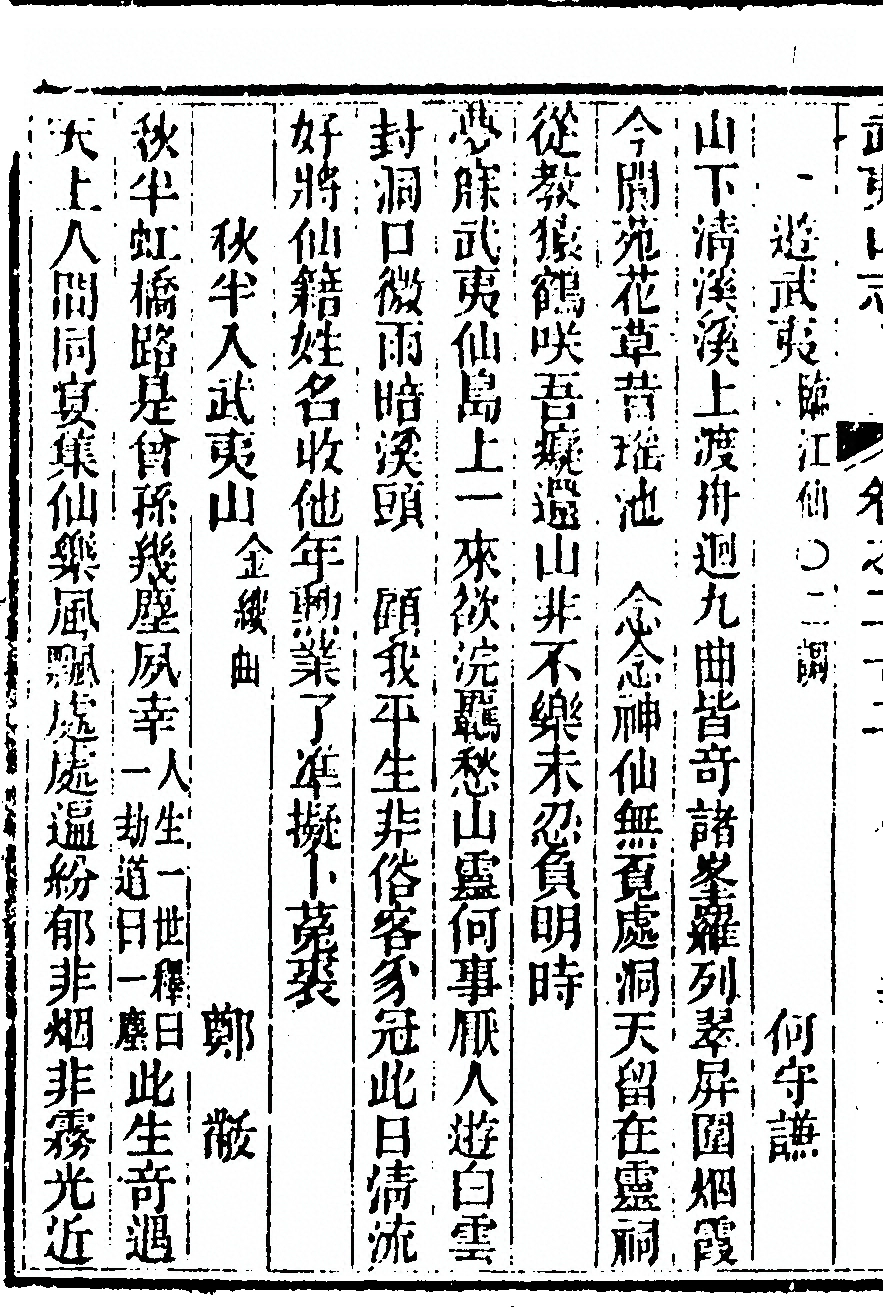 武夷山志 卷之二十二
遊武夷 臨江仙○二調 何守謙
山下淸溪溪上渡舟迴九曲皆奇諸峯羅列翠屛圍烟霞
今閬苑花草昔瑤池 念念神仙無覓處洞天留在靈祠
從教猿鶴咲吾癡還山非不樂未忍負明時
夢寐武夷仙島上一來欲浣羈愁山靈何事厭人遊白雲
封洞口微雨暗溪頭 顧我平生非俗客豸冠此日淸流
好將仙籍姓名收他年勲業了凖擬卜菟裘
秋半入武夷山 金縷曲 鄭 黻
秋半虹橋路是曾孫幾塵夙幸人生一世釋曰一劫道曰一塵此生奇遇
天上人間同宴集仙樂風飄處處遍紛郁非烟非霧光近